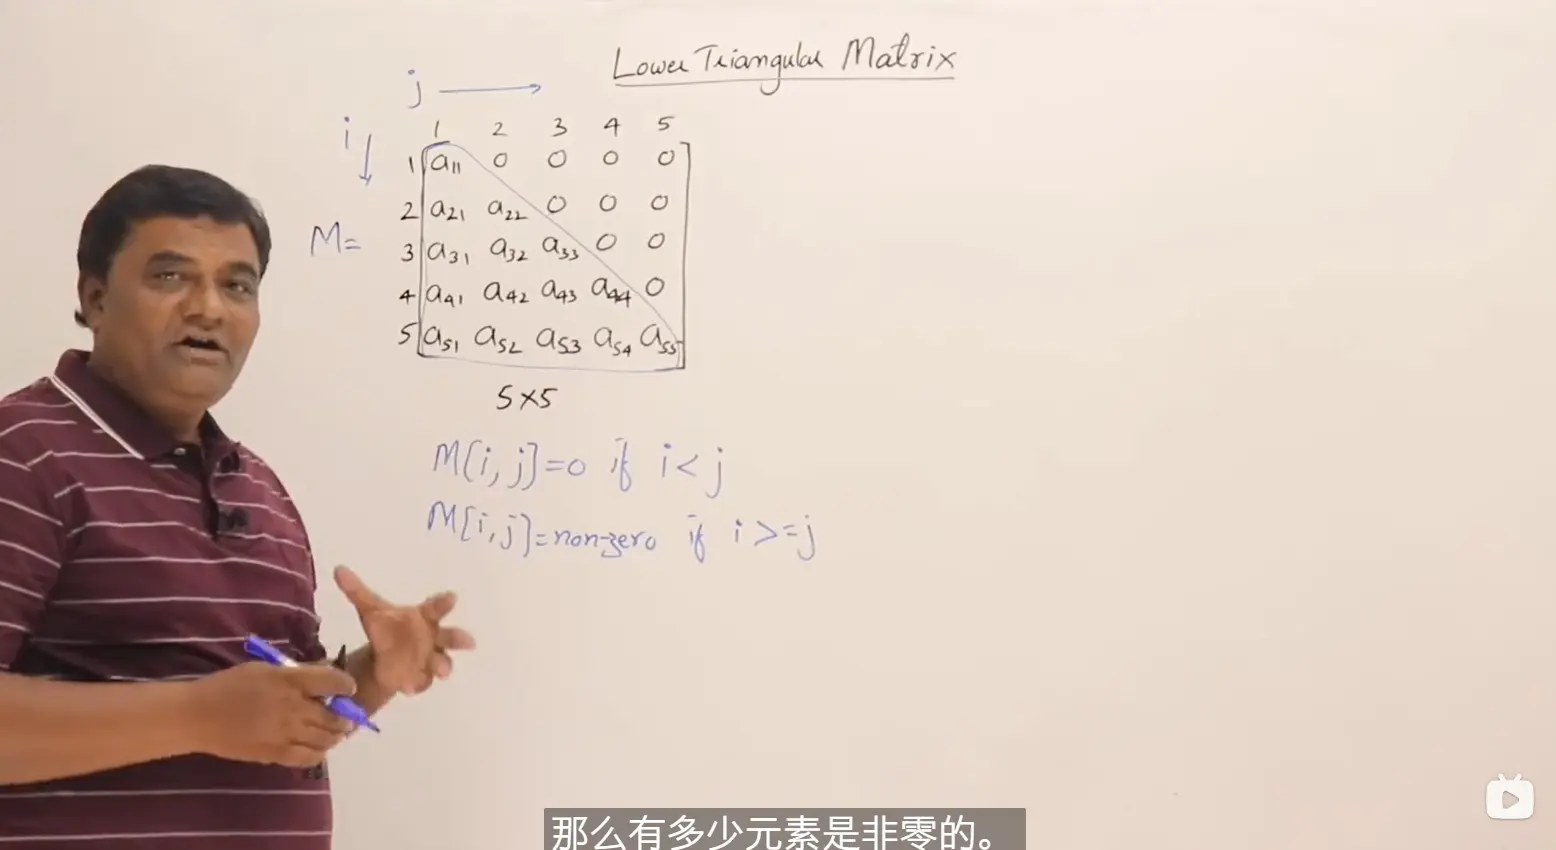 Lower Triangular Matrix
j
i
1 2 3 4 5
1 a11 0 0 0 0
2 a21 a22 0 0 0
M=
3 a31 a32 a33 0 0
4 a41 a42 a43 a44 0
5 a51 a52 a53 a54 a55
5×5
M[i, j]=0 if i< j
M[i,j]=non-zero if i >=j
那么有多少元素是非零的。